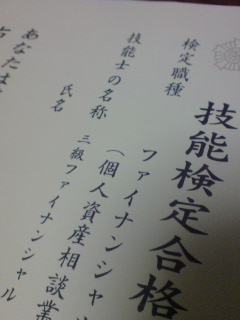 技能検定合格
検定職種
ファイナンシャ
(個人資産相談業
技能士の名称
三級ファイナンシャル
氏名
あなたは